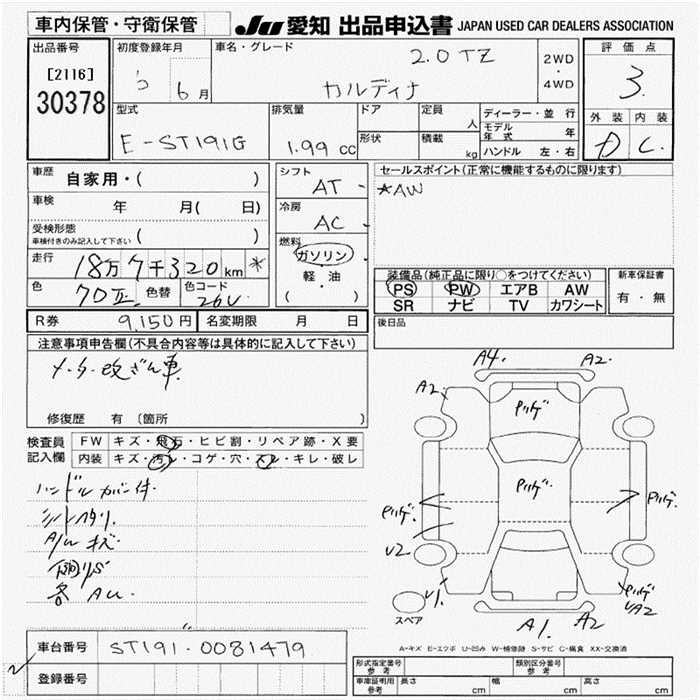 車内保管・守衛保管
JU 愛知 出品申込書 JAPAN USED CAR DEALERS ASSOCIATION
出品番号
[2116]
30378
初度登録年月
5 6月
車名・グレード
2.0 TZ
カルディナ
2WD
・
4WD
評価点
3
外装 内装
D C
型式
E-ST191G
排気量
1.99 cc
ドア
形状
定員
人
積載
kg
ディーラー・並行
モデル年式 年
ハンドル 左・右
車歴
自家用・( )
車検
年 月( 日)
受検形態
車検付きのみ記入して下さい ( )
走行
18万7千320km *
色
色替
色コード
26V
シフト
AT
冷房
AC
燃料
ガソリン
軽・油
( )
セールスポイント(正常に機能するものに限ります)
*AW
装備品(純正品に限り○をつけてください)
PS PW エアB AW
SR ナビ TV カワシート
新車保証書
有・無
R券 9,150円 名変期限 月 日
後日品
注意事項申告欄(不具合内容等は具体的に記入して下さい)
メータ改ざん車
修復歴 有 〔箇所 〕
検査員記入欄
FW キズ・飛石・ヒビ割・リペア跡・X要
内装 キズ・汚レ・コゲ・穴・スレ・キレ・破レ
ハンドルカバー付
A/W キズ
A4 A2
A2
U2
V1
UA2
A1 A2
スペア
A-キズ E-エクボ U-凹み W-補修跡 S-サビ C-腐食 XX-交換済
車台番号 ST191-0081479
登録番号
形式指定番号 参考
類別区分番号 参考
車庫証明用 参考 長さ cm 幅 cm 高さ cm